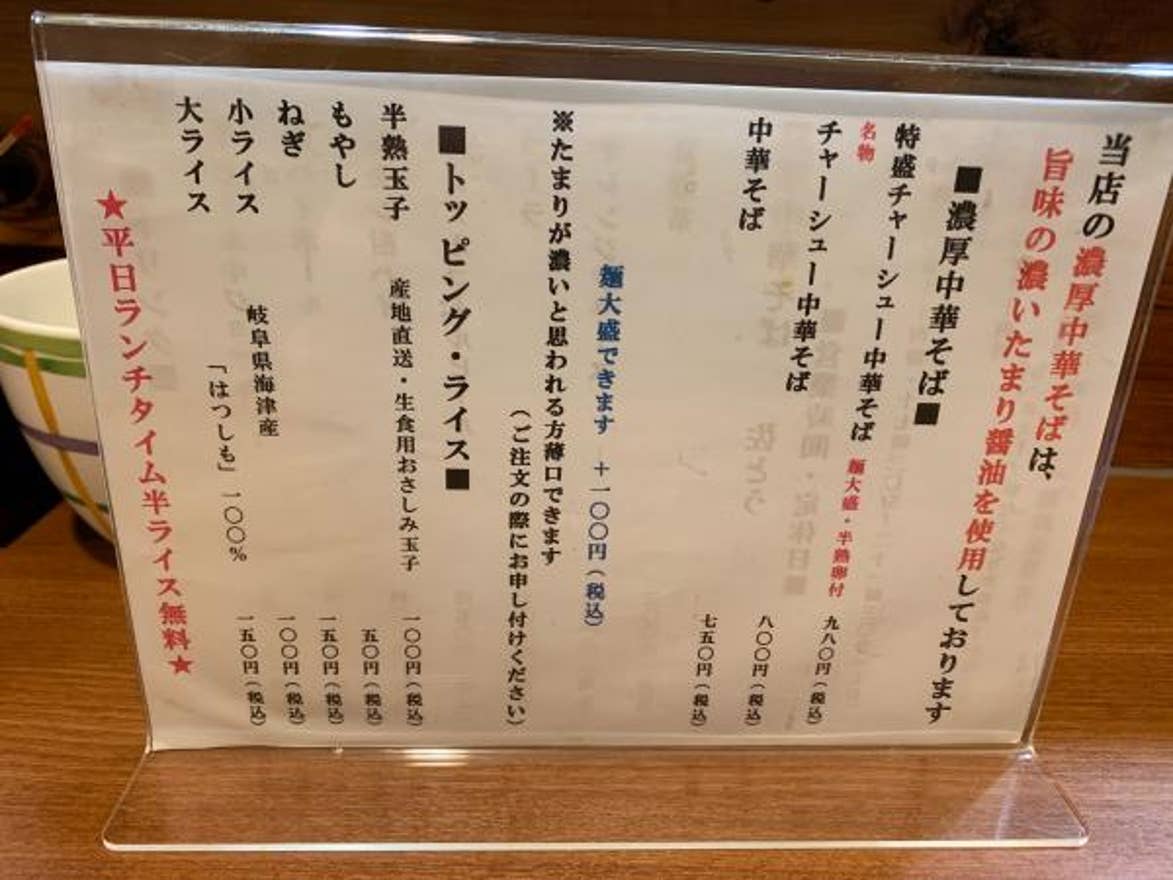 当店の濃厚中華そばは、
旨味の濃いたまり醤油を使用しております
■濃厚中華そば■
特盛チャーシュー中華そば 麺大盛・半熟卵付 九八〇円（税込）
名物
チャーシュー中華そば 八〇〇円（税込）
中華そば 七五〇円（税込）
麺大盛できます ＋一〇〇円（税込）
※たまりが濃いと思われる方薄口できます
（ご注文の際にお申し付けください）
■トッピング・ライス■
半熟玉子 産地直送・生食用おさしみ玉子 一〇〇円（税込）
もやし 五〇円（税込）
ねぎ 一五〇円（税込）
小ライス 岐阜県海津産 一〇〇円（税込）
大ライス 「はつしも」一〇〇％ 一五〇円（税込）
★平日ランチタイム半ライス無料★